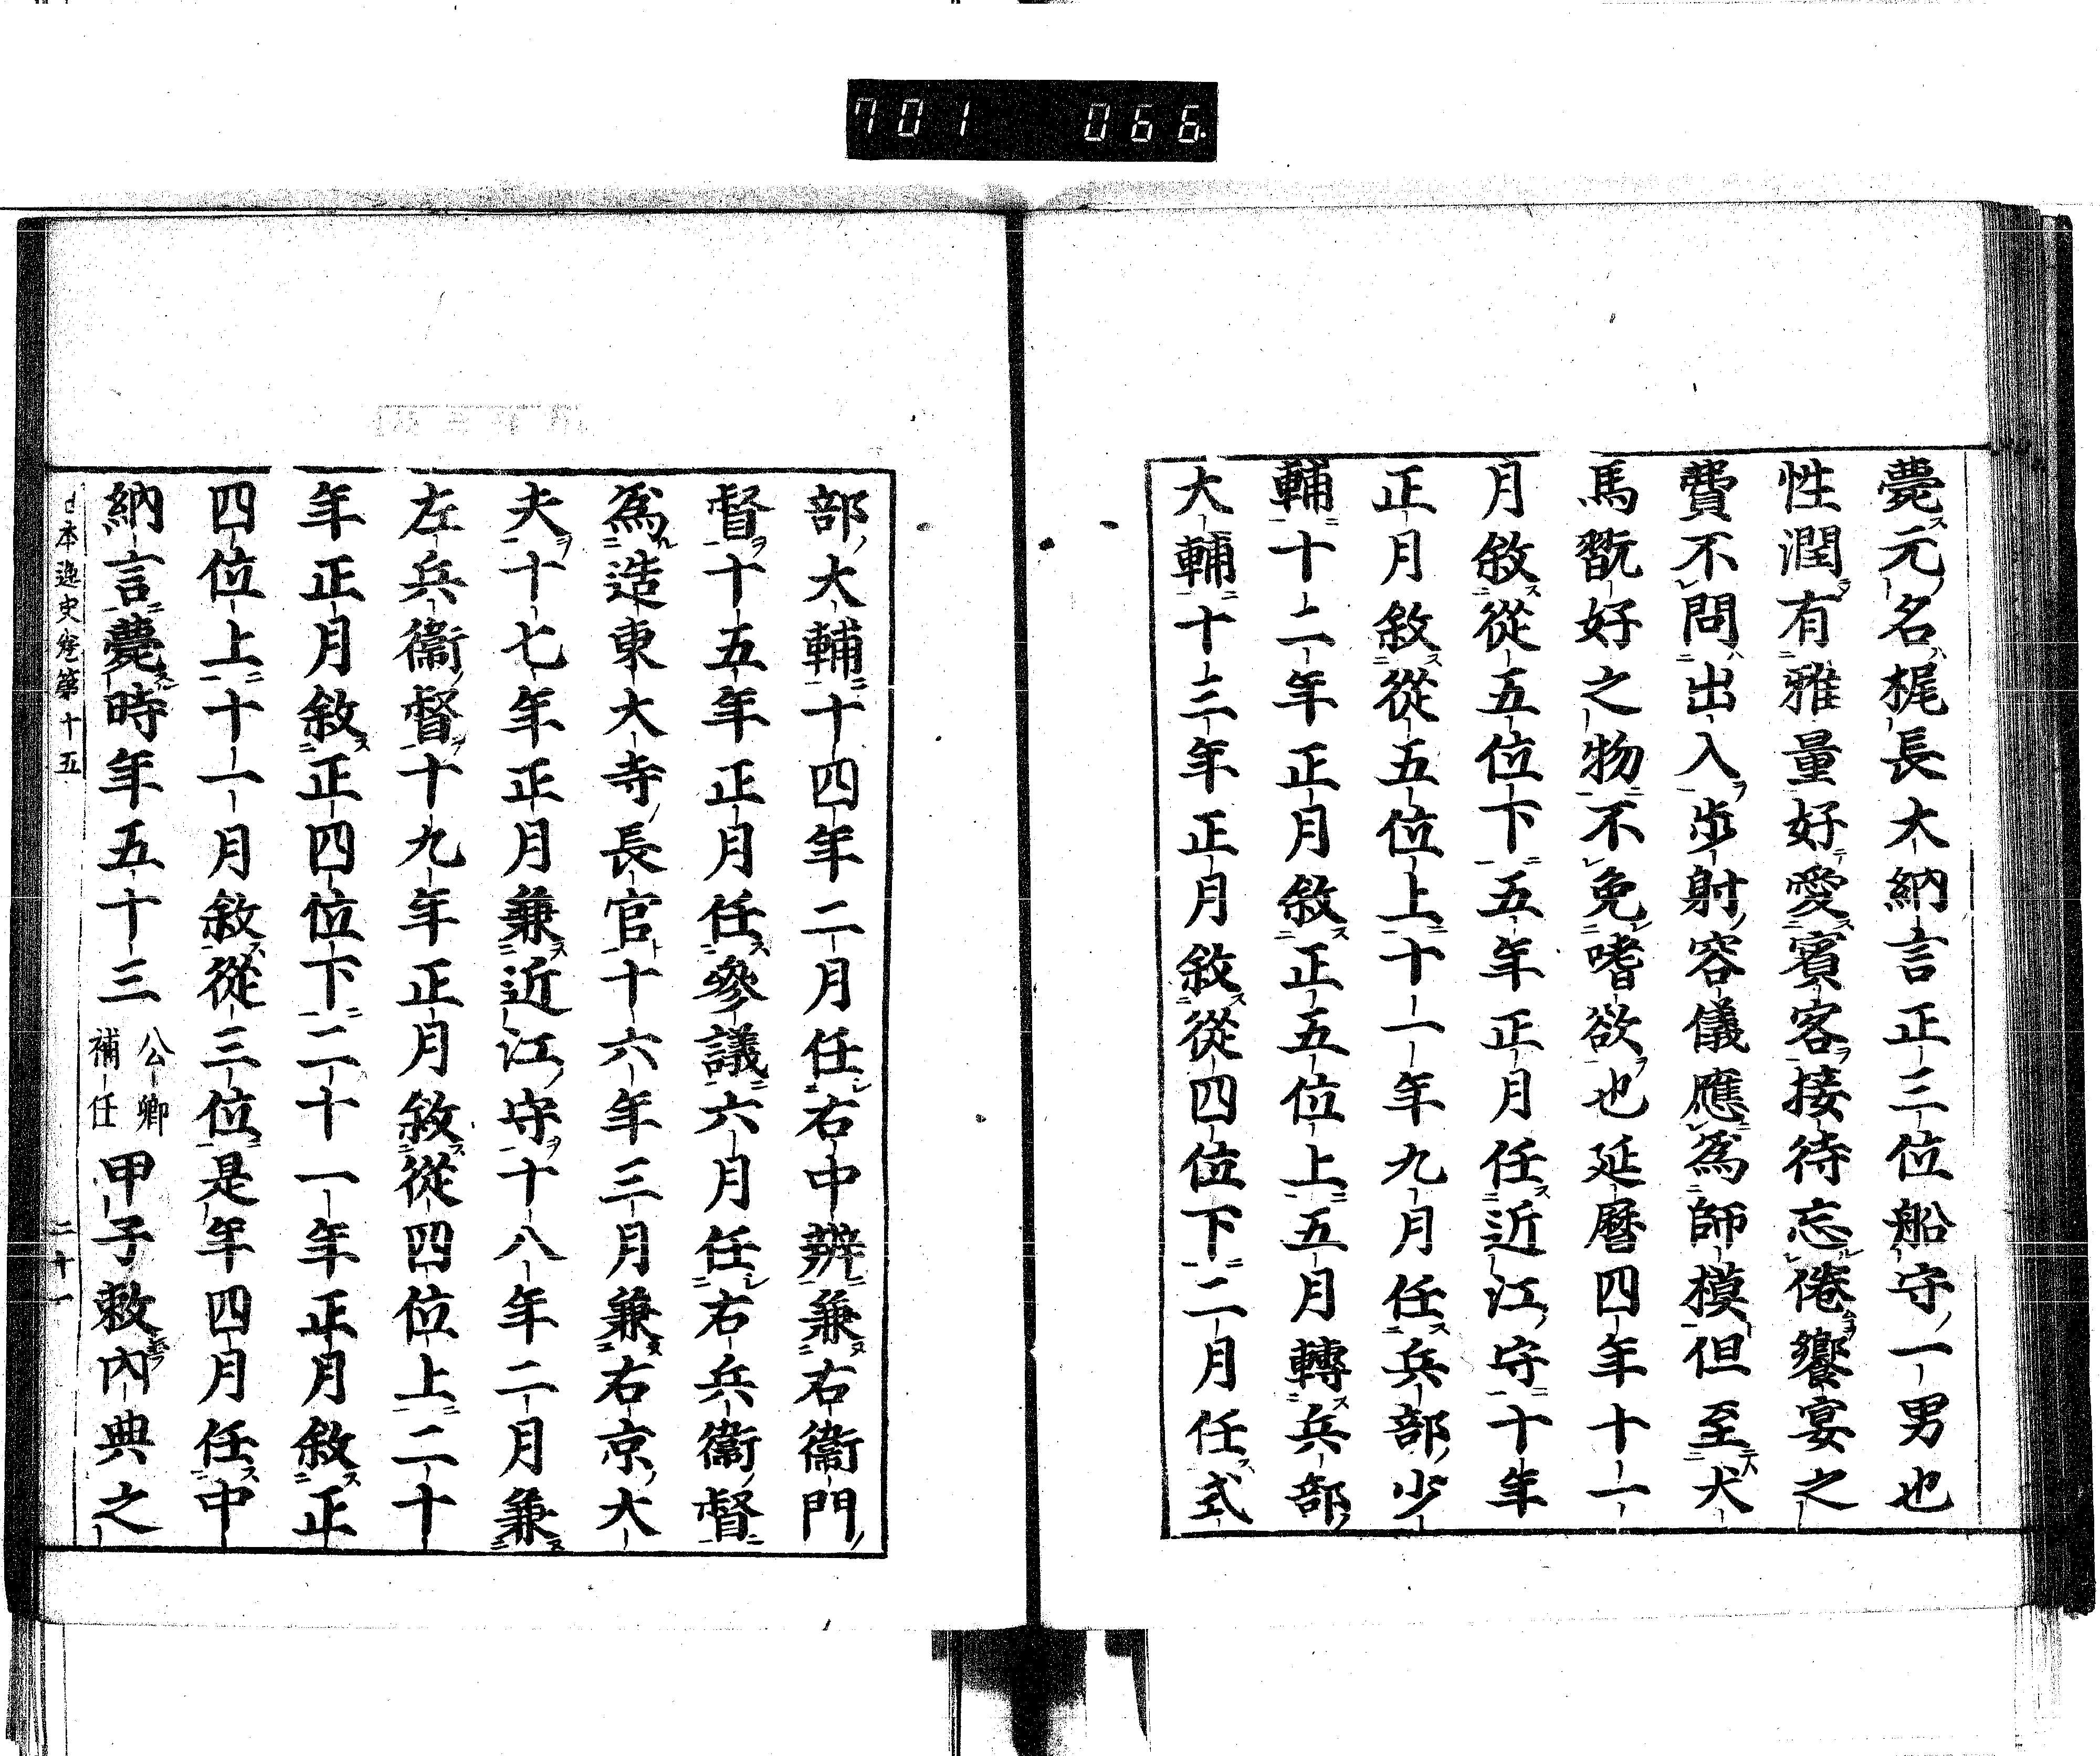 701 066
薨元名梶長大納言正三位船守一男也
性潤有雅量好愛賓客接待忘倦饗宴之
費不問出入步射容儀應爲師模但至犬
馬翫好之物不免嗜欲也延曆四年十一
月敘從五位下五年正月任近江守十年
正月敘從五位上十一年九月任兵部少
輔十二年正月敘正五位上五月轉兵部
大輔十三年正月敘從四位下二月任式
部大輔十四年二月任右中辨兼右衞門
督十五年正月任參議六月任右兵衞督
爲造東大寺長官十六年三月兼右京大
夫十七年正月兼近江守十八年二月兼
左兵衞督十九年正月敘從四位上二十
年正月敘正四位下二十一年正月敘正
四位上十一月敘從三位是年四月任中
納言薨時年五十三公卿補任甲子敕內典之
日本逸史卷第十五 二十一